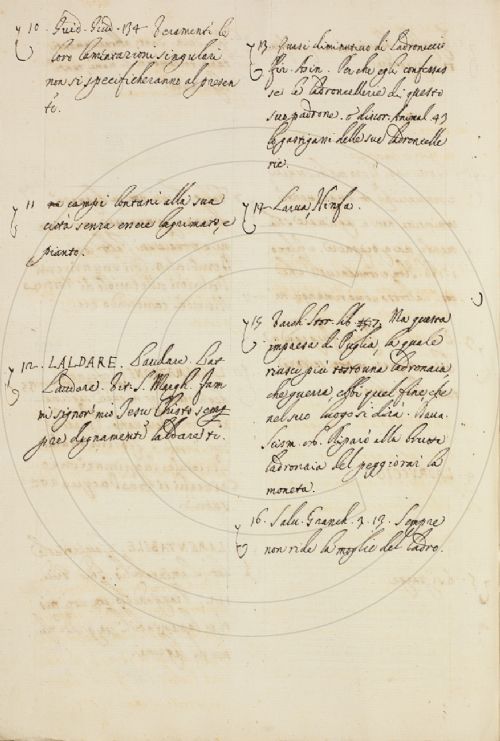 10. Guid. Giud. 134. Veramenti le
loro lamentazioni singulari
non si specificheranno al presen
te.
11 ne campi lontani alla sua
città senza essere lagrimato, e
pianto.
12. LALDARE. Laudare. Lat.
Laudare. Vit. S. Margh. fam
mi signor mio Jesu Christo sem
pre degnamente laldare te.
13. quasi diminutivo di Ladroneccio
Fir. Asin. Perche egli confessas
se le ladroncellerie di questo
suo padrone. o discor. Animal. 43
la gastigassi delle sue ladroncelle
rie.
14. Larva, Ninfa.
15. Varch. Stor. lib. Ma questa
impresa di Puglia, la quale
riuscì più tosto una ladronaia
che guerra, ebbe quel fine, che
nel suo luogo si dirà. Dava.
Scism. 86. Riparò alla brutta
ladronaia del peggiorar la
moneta.
16. Salv. Granch. 3. 13. Sempre
non ride la moglie del ladro.